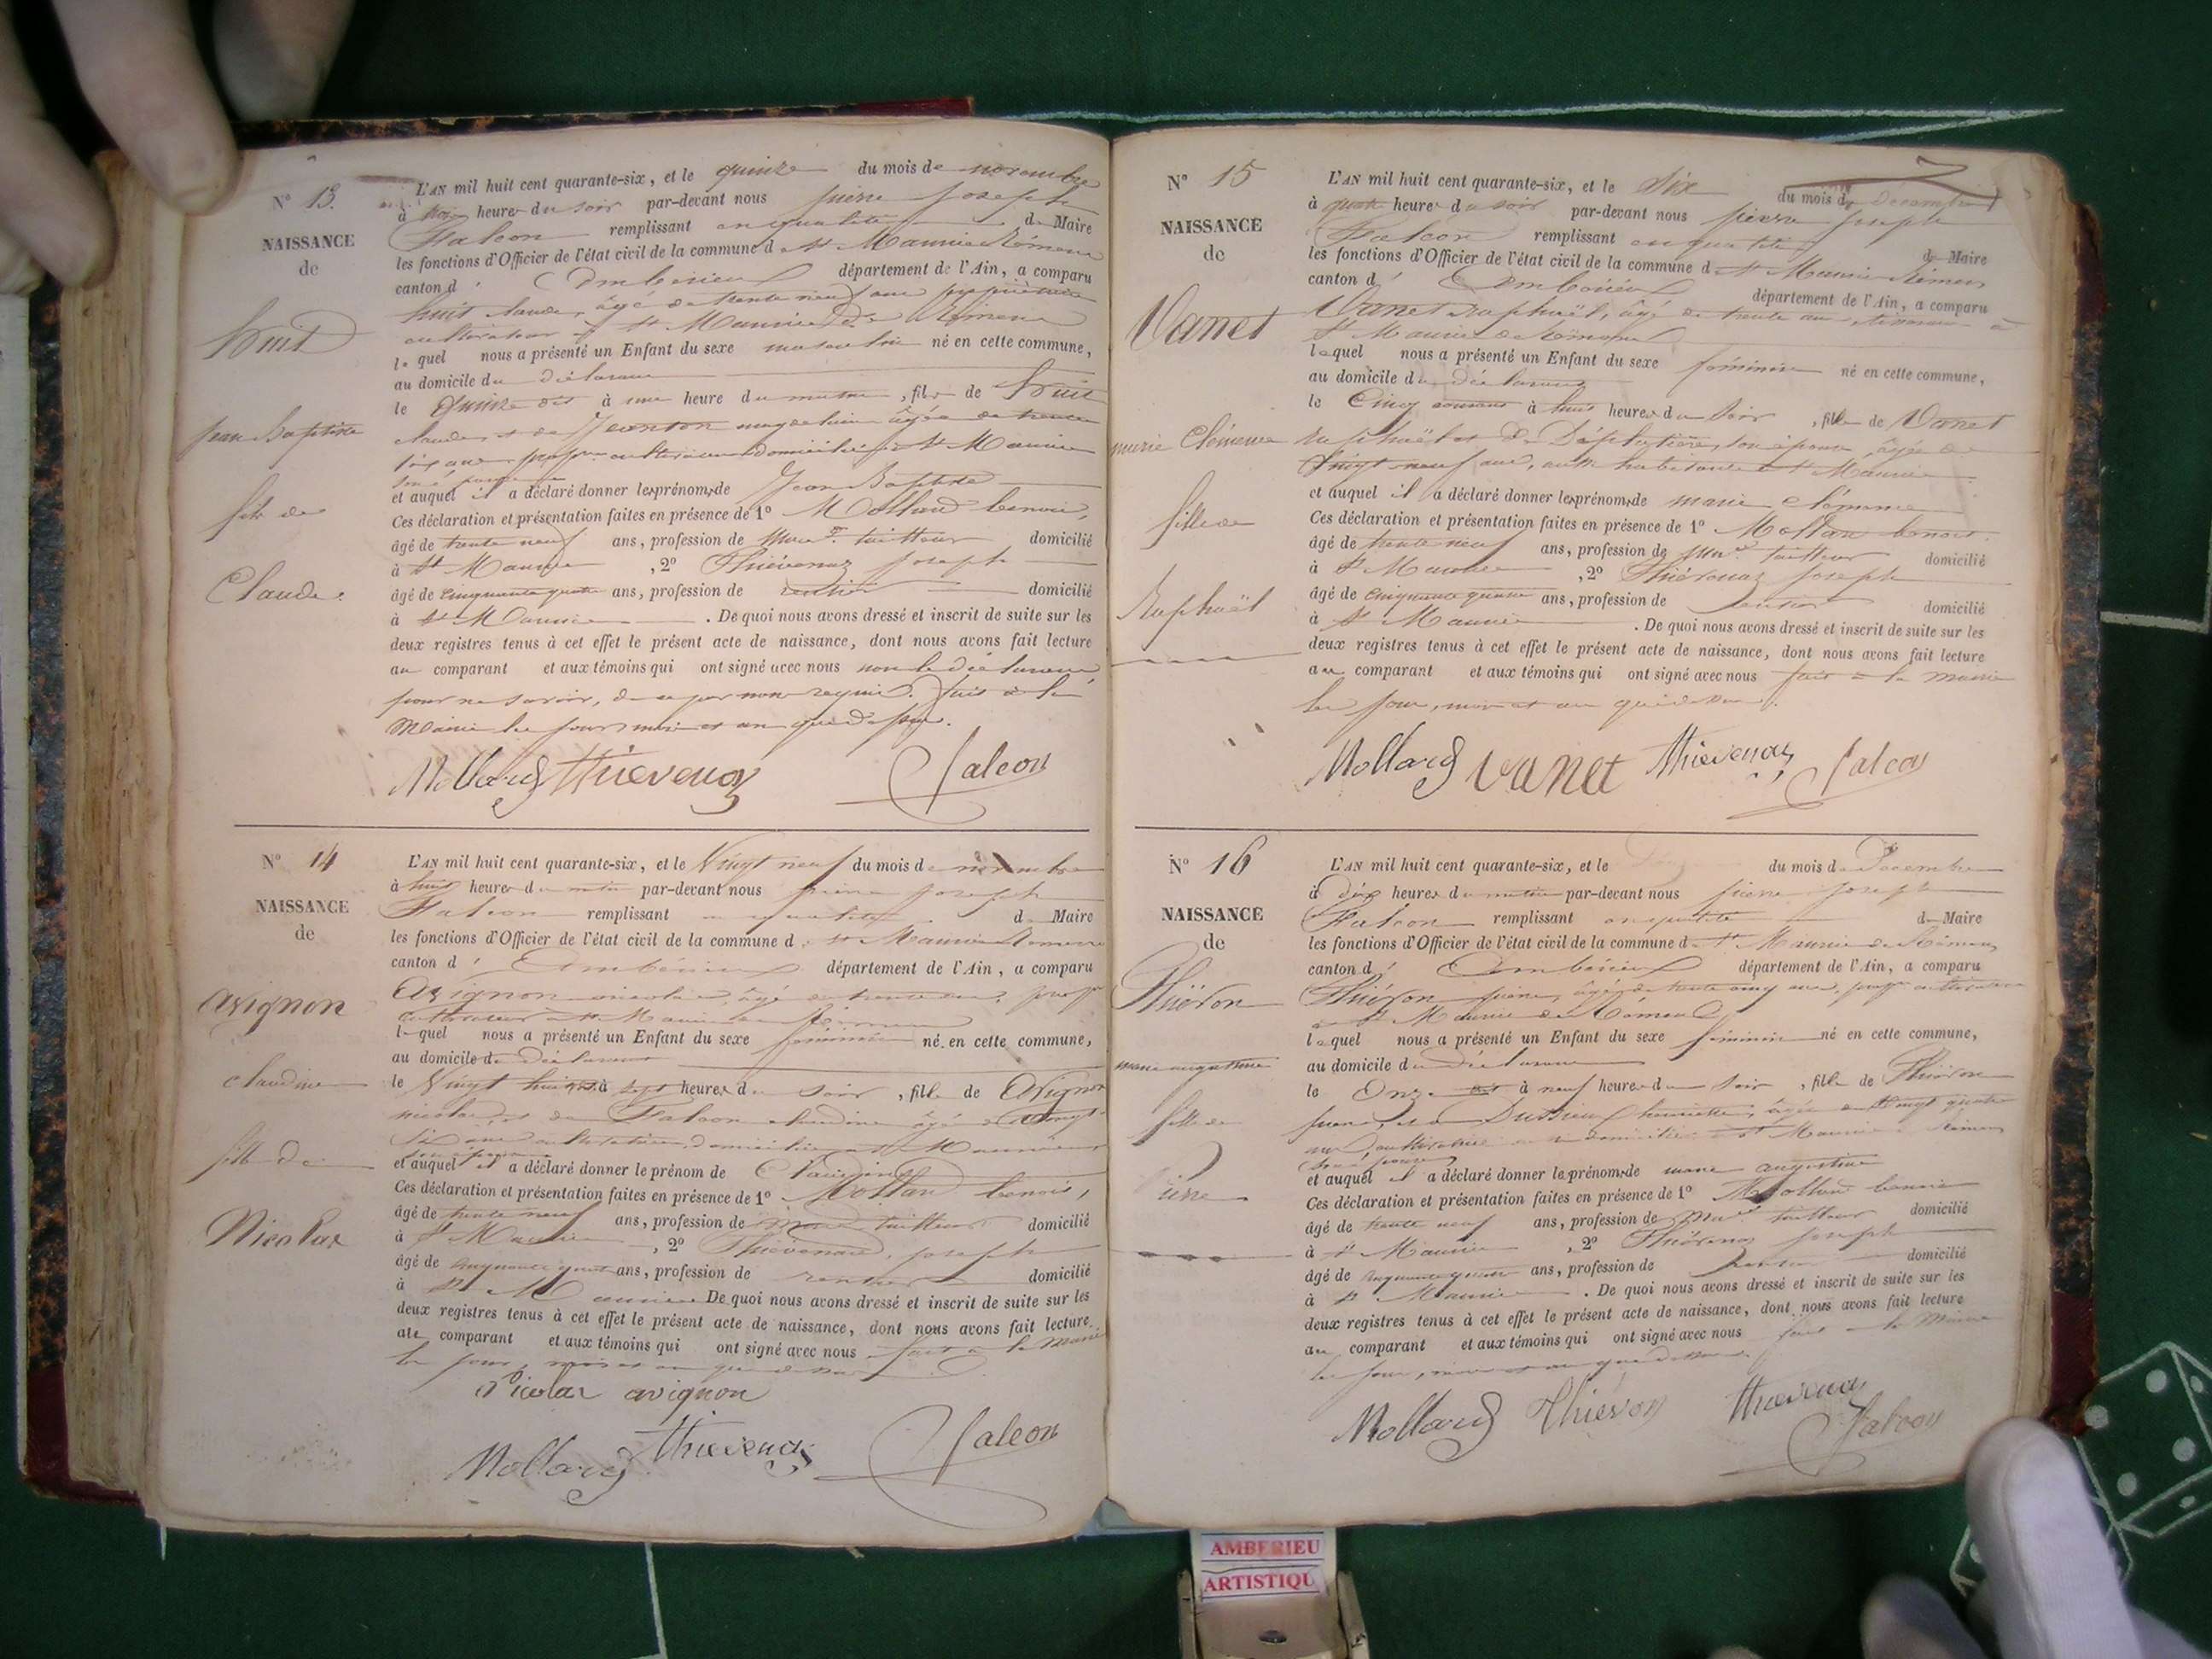 N° 13.
NAISSANCE
de
huit
jean Baptiste
fils de
Claude.
L'AN mil huit cent quarante-six, et le quinze du mois de novembre
à heures du soir par-devant nous pierre joseph
Falcon remplissant en qualité de Maire
les fonctions d'Officier de l'état civil de la commune de St Maurice Rémens
canton d' Ambérieu département de l'Ain, a comparu
huit claude, âgé de trente neuf ans propriétaire
cultivateur à St Maurice de Rémens
lequel nous a présenté un Enfant du sexe masculin né en cette commune,
au domicile du déclarant
le Quinze dit à une heure du matin, fils de huit
claude et de magdelaine âgée de trente
ans domiciliée à St Maurice
son épouse
et auquel il a déclaré donner les prénoms de Jean Baptiste
Ces déclaration et présentation faites en présence de 1° Mollard benoit,
âgé de trente neuf ans, profession de tailleur domicilié
à St Maurice, 2° Thiévenaz joseph
âgé de cinquante quatre ans, profession de rentier domicilié
à St Maurice. De quoi nous avons dressé et inscrit de suite sur les
deux registres tenus à cet effet le présent acte de naissance, dont nous avons fait lecture
au comparant et aux témoins qui ont signé avec nous non le déclarant
pour ne savoir, de ce par nous requis. fait à la
Mairie les jour, mois et an que dessus.
Mollard Thievenaz Falcon
N° 14
NAISSANCE
de
avignon
claudine
fille de
Nicolas
L'AN mil huit cent quarante-six, et le Vingt neuf du mois de novembre
à huit heures du matin par-devant nous pierre joseph
Falcon remplissant en qualité de Maire
les fonctions d'Officier de l'état civil de la commune de St Maurice Rémens
canton d' Ambérieu département de l'Ain, a comparu
Avignon nicolas, âgé de trente ans,
cultivateur à St Maurice de Rémens
lequel nous a présenté un Enfant du sexe féminin né en cette commune,
au domicile du déclarant
le Vingt huit à sept heures du soir, fille de Avignon
nicolas, et de Falcon claudine âgée de vingt
six ans cultivatrice, domiciliée à St Maurice,
son épouse
et auquel il a déclaré donner le prénom de Claudine
Ces déclaration et présentation faites en présence de 1° Mollard benoit,
âgé de trente neuf ans, profession de tailleur domicilié
à St Maurice, 2° Thiévenaz, joseph
âgé de cinquante quatre ans, profession de rentier domicilié
à St Maurice De quoi nous avons dressé et inscrit de suite sur les
deux registres tenus à cet effet le présent acte de naissance, dont nous avons fait lecture
au comparant et aux témoins qui ont signé avec nous fait à la Mairie
les jour, mois et an que dessus.
Nicolas avignon
Mollard Thievenaz Falcon
N° 15
NAISSANCE
de
Vanet
marie Clémence
fille de
Raphaël
L'AN mil huit cent quarante-six, et le Six du mois de décembre
à quatre heures du soir par-devant nous pierre joseph
Falcon remplissant en qualité de Maire
les fonctions d'Officier de l'état civil de la commune de St Maurice Rémens
canton d' Ambérieu département de l'Ain, a comparu
Vanet Raphaël, âgé de trente ans, à
St Maurice de Rémens
lequel nous a présenté un Enfant du sexe féminin né en cette commune,
au domicile du déclarant
le Cinq courant à huit heures du soir, fille de Vanet
Raphaël et de son épouse, âgée de
vingt neuf ans, habitante à St Maurice
et auquel il a déclaré donner les prénoms de marie clémence
Ces déclaration et présentation faites en présence de 1° Mollard benoit.
âgé de trente neuf ans, profession de tailleur domicilié
à St Maurice, 2° Thiévenaz joseph
âgé de cinquante quatre ans, profession de rentier domicilié
à St Maurice. De quoi nous avons dressé et inscrit de suite sur les
deux registres tenus à cet effet le présent acte de naissance, dont nous avons fait lecture
au comparant et aux témoins qui ont signé avec nous fait à la mairie
les jour, mois et an que dessus.
Mollard vanet Thievenaz Falcon
N° 16
NAISSANCE
de
Thiévon
marie augustine
fille de
Pierre
L'AN mil huit cent quarante-six, et le du mois de Décembre
à dix heures du matin par-devant nous pierre joseph
Falcon remplissant en qualité de Maire
les fonctions d'Officier de l'état civil de la commune de St Maurice de Rémens
canton d' Ambérieu département de l'Ain, a comparu
Thiévon pierre, âgé de trente cinq ans, cultivateur
à St Maurice de Rémens
lequel nous a présenté un Enfant du sexe féminin né en cette commune,
au domicile du déclarant
le Onze à neuf heures du soir, fille de Thiévon
pierre, et de henriette, âgée de vingt quatre
ans, domiciliée à St Maurice Rémens
son épouse
et auquel il a déclaré donner les prénoms de marie augustine
Ces déclaration et présentation faites en présence de 1° Mollard benoit
âgé de trente neuf ans, profession de tailleur domicilié
à St Maurice, 2° Thiévenaz joseph
âgé de cinquante quatre ans, profession de rentier domicilié
à St Maurice. De quoi nous avons dressé et inscrit de suite sur les
deux registres tenus à cet effet le présent acte de naissance, dont nous avons fait lecture
au comparant et aux témoins qui ont signé avec nous fait à la Mairie
les jour, mois et an que dessus.
Mollard Thiévon Thievenaz Falcon
AMBERIEU
ARTISTIQU